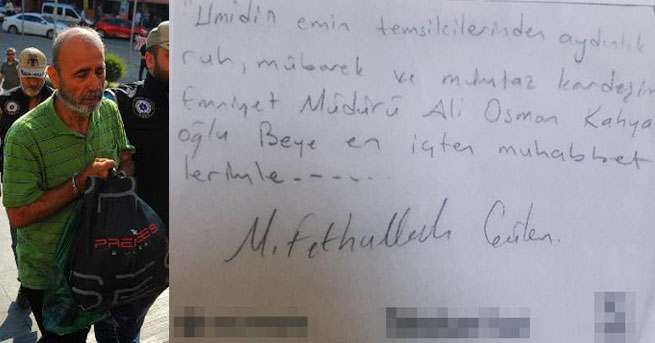 Ümidin emin temsilcilerinden aydınlık
ruh, mübarek ve mümtaz kardeşim
Emniyet Müdürü Ali Osman Kahya
oğlu Beye en içten muhabbet
lerimle------
M. Fethullah Gülen.
PREMIES